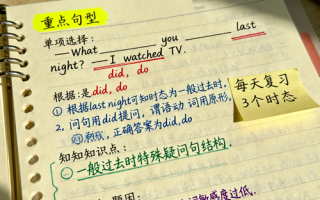 重点句型
单项选择：
—— What ____ you ____ last
night? —— I watched TV.
did, do
根据:是did, do
① 根据last night可知时态为一般过去时,
2, 问句用did提问，谓语动 词用原形,
正确答案为did,do
每天复习
3个时态
知知知识点：
一般过去时特殊疑问句结构.
题因：
敏感度过低.